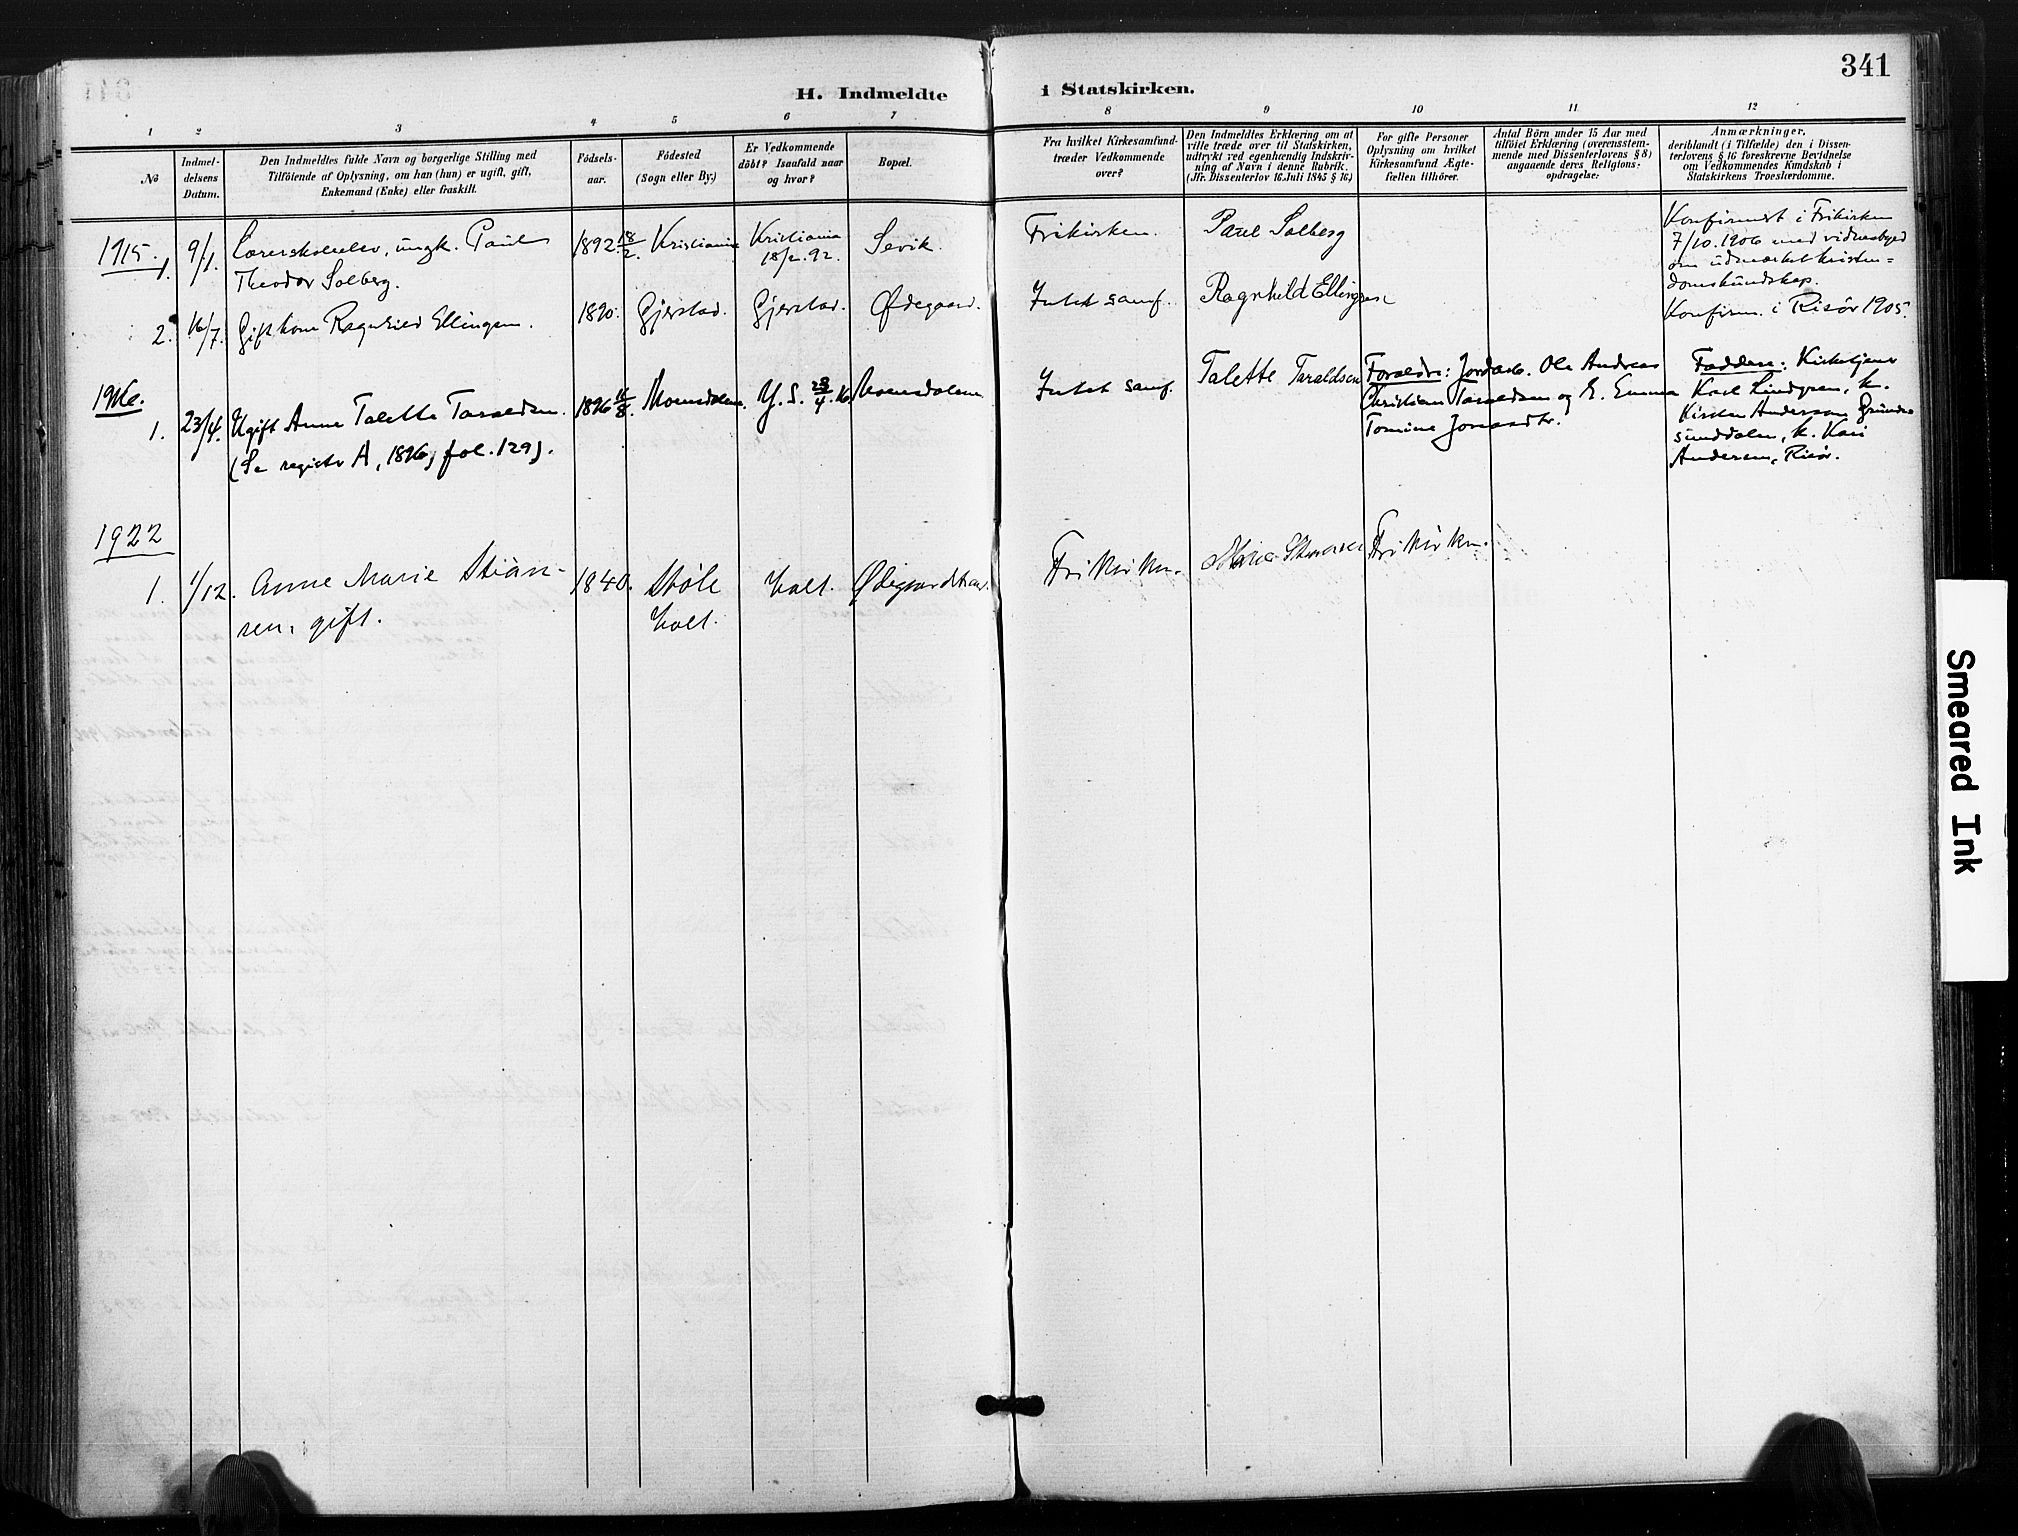 341
H. Indmeldte i Statskirken.
1 2 3 4 5 6 7 8 9 10 11 12
No
Indmel-
delsens
Datum.
Den Indmeldtes fulde Navn og borgerlige Stilling med
Tilföiende af Oplysning, om han (hun) er ugift, gift,
Enkemand (Enke) eller fraskilt.
Födsels-
aar.
Födested
(Sogn eller By.)
Er Vedkommende
döbt? Isaafald naar
og hvor?
Bopæl.
Fra hvilket Kirkesamfund
træder Vedkommende
over?
Den Indmeldtes Erklæring om at
ville træde over til Statskirken,
udtrykt ved egenhændig Indskriv-
ning af Navn i denne Rubrik.
(Jfr. Dissenterlov 16 Juli 1845 § 16.)
For gifte Personer
Oplysning om hvilket
Kirkesamfund Ægte-
fællen tilhörer.
Antal Börn under 15 Aar med
tilföiet Erklæring (overensstem-
mende med Dissenterlovens § 8)
angaaende deres Religions-
opdragelse:
Anmærkninger,
deriblandt (i Tilfælde) den i Dissen-
terlovens § 16 foreskrevne Bevidnelse
om Vedkommendes Kundskab i
Statskirkens Troeslærdomme.
1915.
1. 9/1. Lærerskoleelev, ungk. Paul
Theodor Solberg.
1892 18/2. Kristiania
Kristiania
18/2. 92.
Sevik.
Frikirken.
Paul Solberg
Konfirmert i Frikirken
7/10. 1906 med vidnesbyrd
om udmærket kristen=
domskundskap.
2. 16/7. Gift kone Ragnhild Ellingsen.
1890. Gjerstad. Gjerstad. Ødegaard.
Intet samf.
Ragnhild Ellingsen
Konfirm. i Risör 1905.
1916.
1. 23/4. Ugift Anne Talette Taraldsen.
(Se register A, 1896, fol. 129).
1896 16/8. Moensdalen. Y. S. 23/4. 16. Moensdalen
Intet samf.
Talette Taraldsen
Foraldre: Jordarb. Ole Andreas
Christian Taraldsen og E. Emma
Tomine
Faddere: Kirketjener
Karl Lindgren, k.
Kirsten Andersen
sunddalen, k. Kari
Andersen, Risör.
1922
1. 1/12. Anne Marie Stian-
sen, gift.
1840. Støle
Holt.
Holt.
Frikirken.
Frikirken.
Smeared Ink